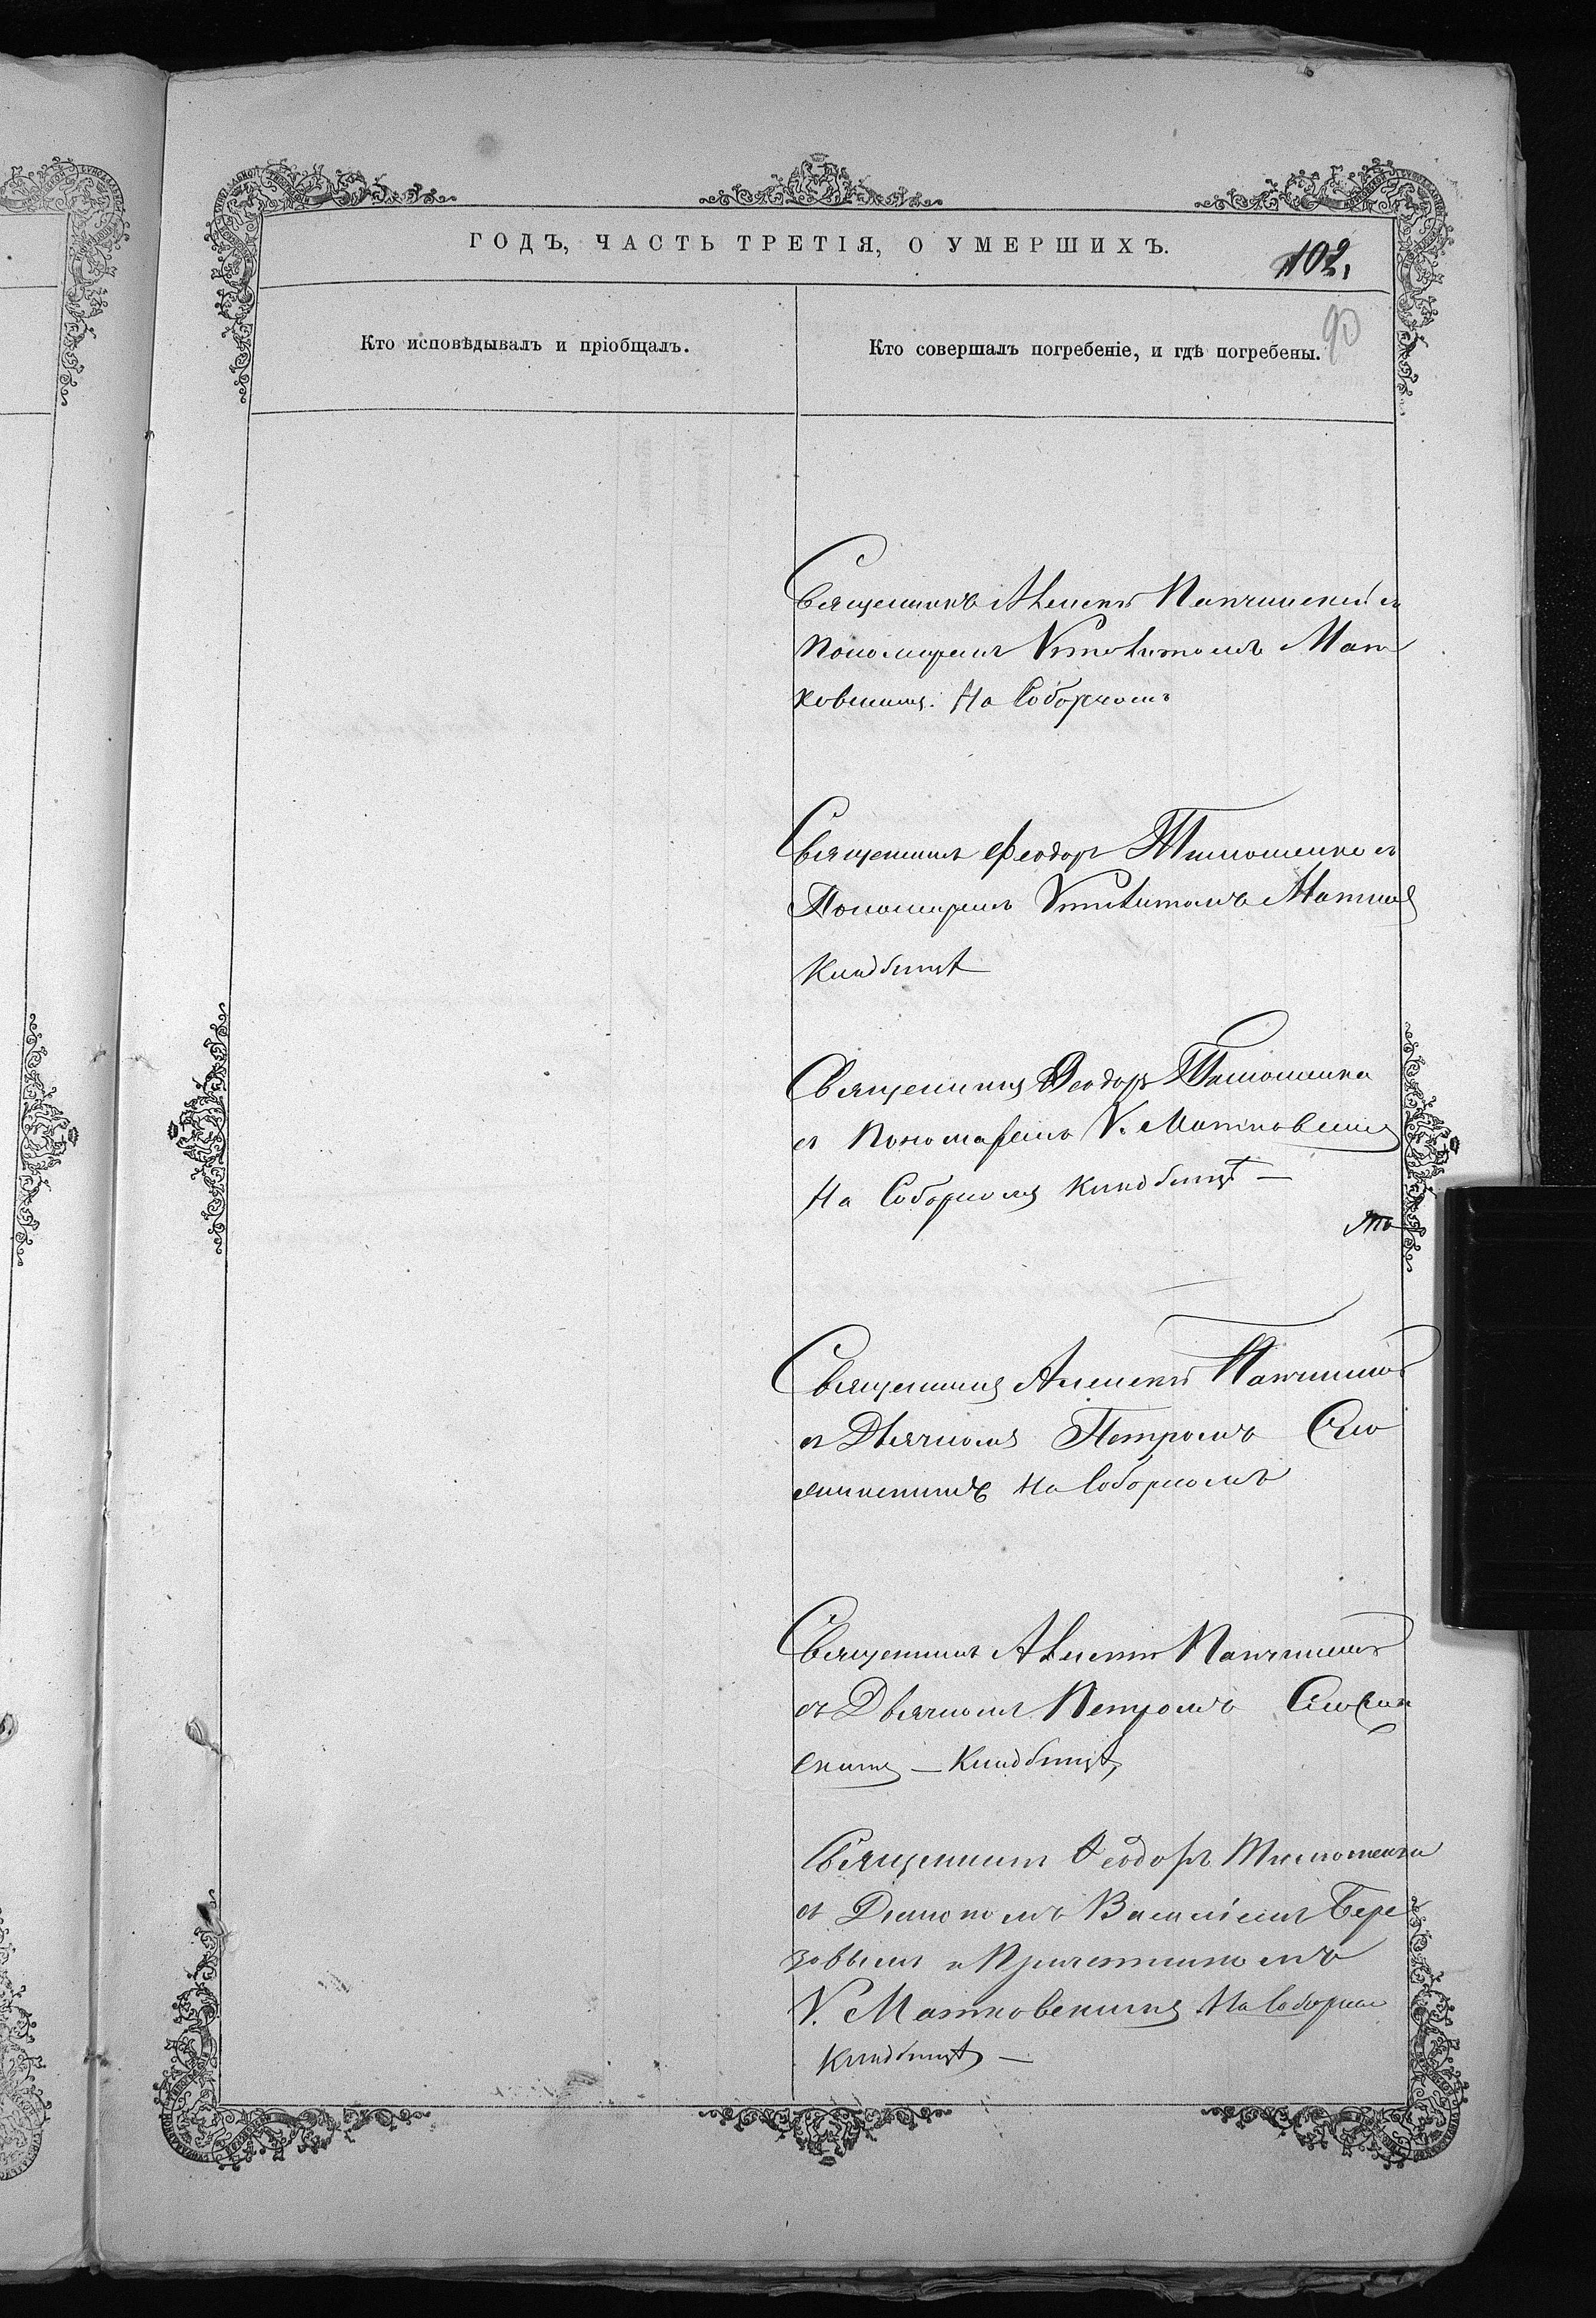 ГОДЪ, ЧАСТЬ ТРЕТІЯ, О УМЕРШИХЪ.
102,
90
Кто исповѣдывалъ и пріобщалъ.
Кто совершалъ погребеніе, и гдѣ погребены.
Священникъ Алексѣй съ
Пономаремъ Vпполитомъ Мат
ковскимъ. На Соборномъ
Священникъ Феодоръ Тимошенко съ
Пономаремъ Vпполитомъ
Кладбищѣ
Священникъ Ѳеодоръ Тимошенко
съ Пономаремъ V. Матковскимъ
На Соборномъ Кладбищѣ —
Священникъ Алексѣй
съ Дьячкомъ Петромъ
На Соборномъ
Священникъ Алексѣй
съ Дьячкомъ Петромъ
скимъ — Кладбищѣ,
Священникъ Ѳеодоръ Тимошенко
съ Діакономъ Василіемъ Бере
зовымъ и Причетникомъ
V. Матковскимъ На Соборном
Кладбищѣ —